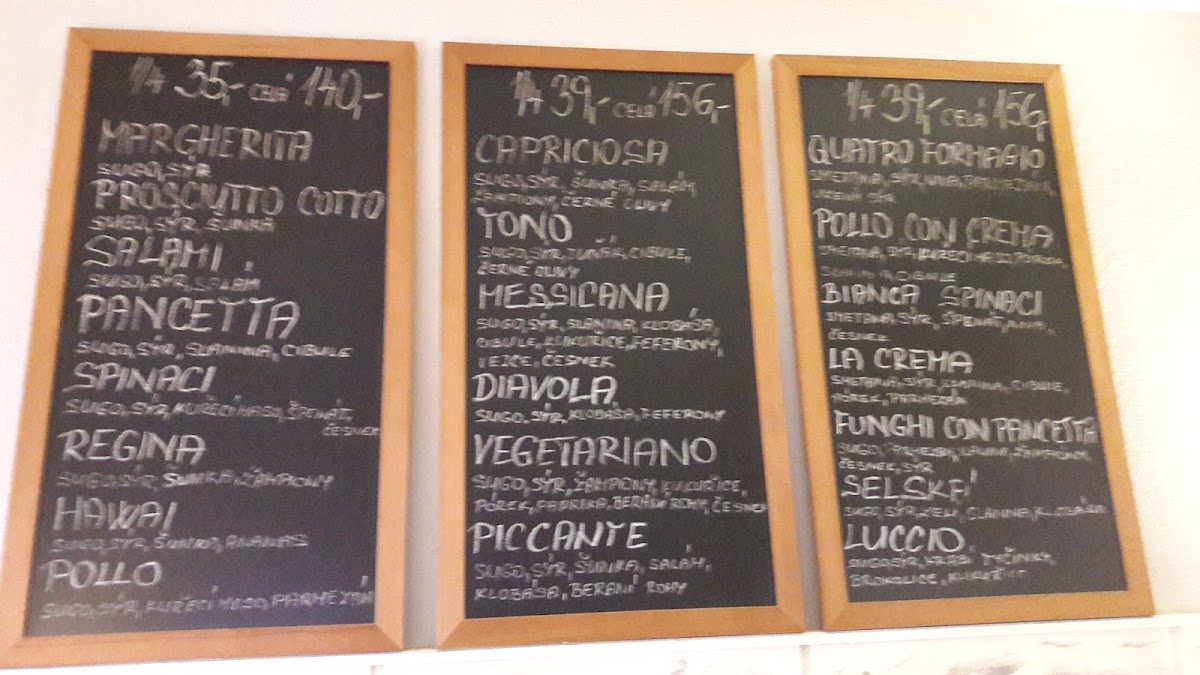 1/4 35,- CELÁ 140,-
MARGHERITA
SUGO, SÝR
PROSCIUTTO COTTO
SUGO, SÝR, ŠUNKA
SALAMI
SUGO, SÝR, SALÁM
PANCETTA
SUGO, SÝR, SLANINA, CIBULE
SPINACI
SUGO, SÝR, KUŘECÍ MASO, ŠPENÁT,
ČESNEK
REGINA
SUGO, SÝR, ŠUNKA, ŽAMPIONY
HAWAI
SUGO, SÝR, ŠUNKA, ANANAS
POLLO
SUGO, SÝR, KUŘECÍ MASO, PARMEZÁN
1/4 39,- CELÁ 156,-
CAPRICIOSA
SUGO, SÝR, ŠUNKA, SALÁM,
ŽAMPIONY, ČERNÉ OLIVY
TONO
SUGO, SÝR, TUŇÁK, CIBULE,
ČERNÉ OLIVY
MESSICANA
SUGO, SÝR, SLANINA, KLOBÁSA,
CIBULE, KUKUŘICE, FEFERONY,
VEJCE, ČESNEK
DIAVOLA
SUGO, SÝR, KLOBÁSA, FEFERONY
VEGETARIANO
SUGO, SÝR, ŽAMPIONY, KUKUŘICE,
PÓREK, PAPRIKA, BERANÍ ROHY, ČESNEK
PICCANTE
SUGO, SÝR, ŠUNKA, SALÁM,
KLOBÁSA, BERANÍ ROHY
1/4 39,- CELÁ 156,-
QUATRO FORMAGIO
SMETANA, SÝR, NIVA, PARMEZÁN,
UZENÝ SÝR
POLLO CON CREMA
SMETANA, SÝR, KUŘECÍ MASO, PÓREK,
CIBULE
BIANCA SPINACI
SMETANA, SÝR, ŠPENÁT, NIVA,
ČESNEK
LA CREMA
SMETANA, SÝR, SLANINA, CIBULE,
PÓREK, PARMEZÁN
FUNGHI CON PANCETTA
SUGO, SLANINA, ŽAMPIONY,
ČESNEK, SÝR
SELSKÁ
SUGO, SÝR, ZELÍ, SLANINA, KLOBÁSA
LUCCIO
SUGO, SÝR, KRAB TYČINKY,
BROKOLICE, KUKUŘICE